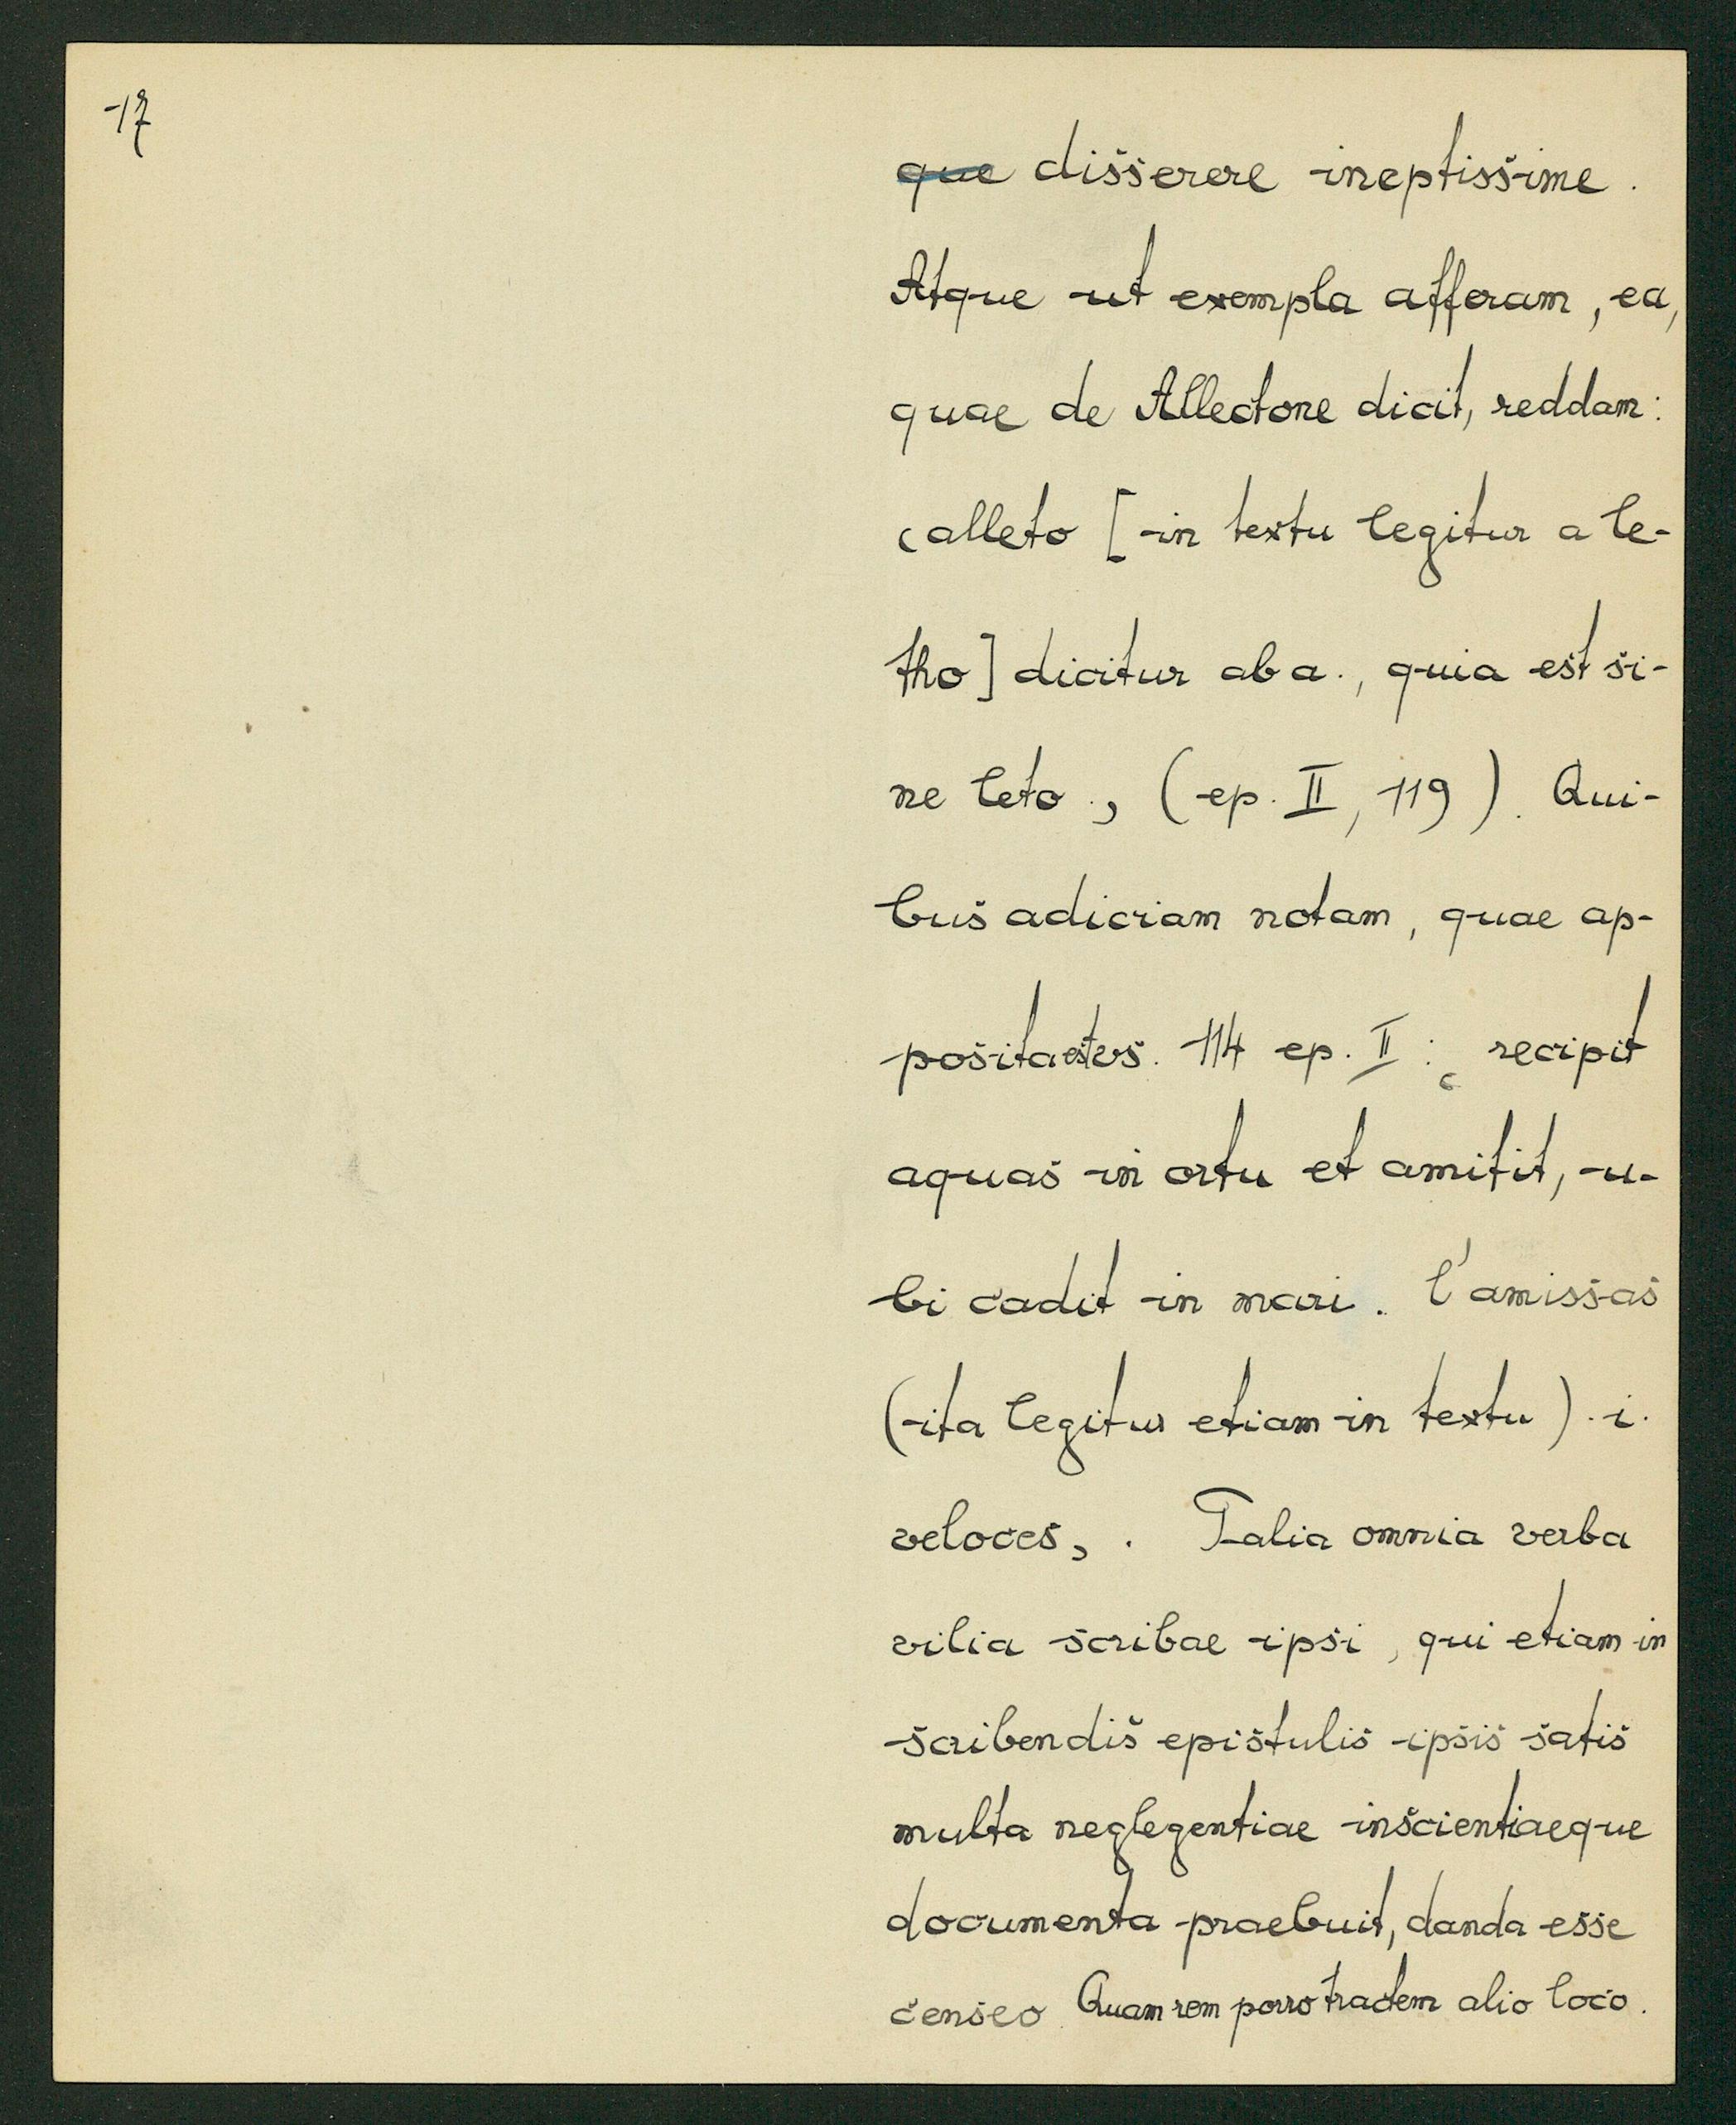 17
que disserere ineptissime.
Atque ut exempla afferam, ea,
quae de Allectone dicit, reddam:
‹alleto [in textu legitur a le-
tho] dicitur ab a., quia est si-
ne leto.› (ep. II, 119). Qui-
bus adiciam notam, quae ap-
posita est vs. 114 ep. II: ‹ recipit
aquas in ortu et amitit, u-
bi cadit in mari. l'amissas
(ita legitur etiam in textu) .i.
veloces›. Talia omnia verba
vilia scribae ipsi, qui etiam in
scribendis epistulis ipsis satis
multa neglegentiae inscientiaeque
documenta praebuit, danda esse
censeo. Quam rem porro tractem alio loco.